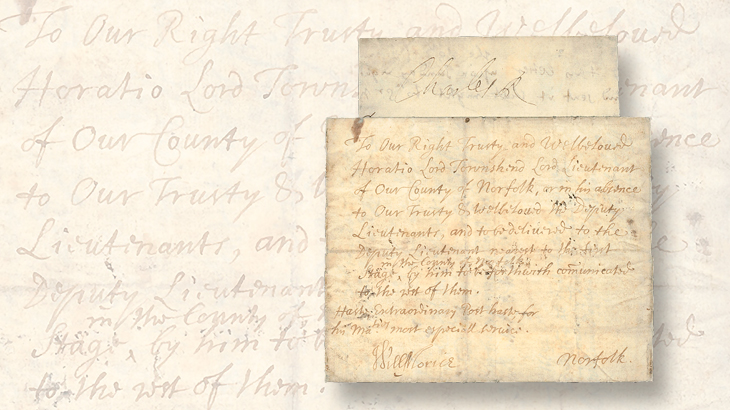 Charles R
To Our Right Trusty and Welbeloved
Horatio Lord Townshend Lord Lieutenant
of Our County of Norfolk, or in his absence
to Our Trusty & Welbeloved the Deputy
Lieutenants, and to be delivered to the
Deputy Lieutenant nearest to the first
in the County of Norfolk
Stage, by him to be forthwith comunicated
to the rest of them.
Hast, Extraordinary Post hast for
his Ma:ties most especiall service.
Will Morice
Norfolk.
To Our Right Trusty and Welbeloved
Horatio Lord Towns
of Our County of
absence
to Our Trusty &
Lieutenants, and
Deputy Lieutenant
in the County of
Stage, by him to
to the rest of them.